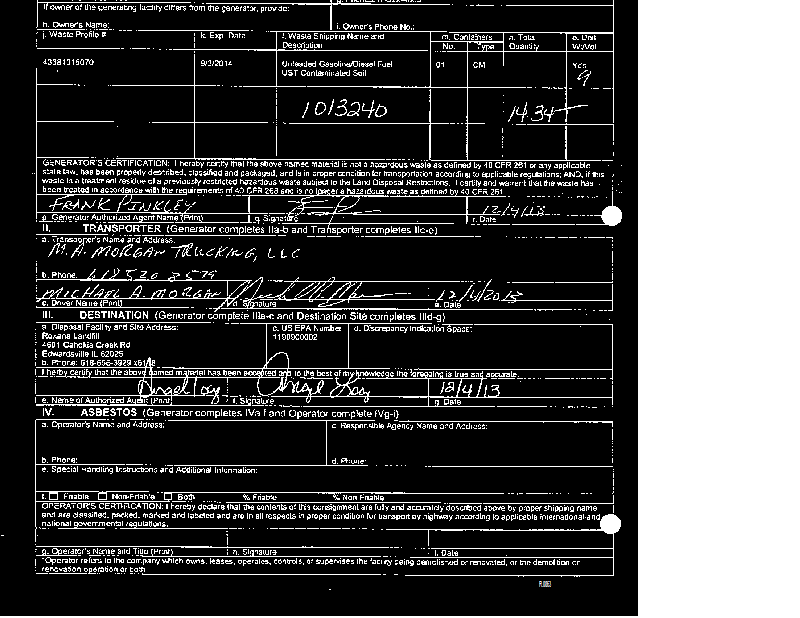 If owner of the generating facility differs from the generator, provide:
h. Owner's Name: i. Owner's Phone No.:
j. Waste Profile # k. Exp. Date l. Waste Shipping Name and Description m. Containers No. Type n. Total Quantity o. Unit Wt/Vol
43381315070 9/3/2014 Unleaded Gasoline/Diesel Fuel UST Contaminated Soil 01 CM Yds
1013240 14.34
GENERATOR'S CERTIFICATION: I hereby certify that the above named material is not a hazardous waste as defined by 40 CFR 261 or any applicable
state law, has been properly described, classified and packaged, and is in proper condition for transportation according to applicable regulations; AND, if this
waste is a treatment residue of a previously restricted hazardous waste subject to the Land Disposal Restrictions, I certify and warrant that the waste has
been treated in accordance with the requirements of 40 CFR 268 and is no longer a hazardous waste as defined by 40 CFR 261
FRANK PINKLEY 12/4/13
p. Generator Authorized Agent Name (Print) q. Signature r. Date
II. TRANSPORTER (Generator completes IIa-b and Transporter completes IIc-e)
a. Transporter's Name and Address:
M.A. MORGAN TRUCKING, LLC
b. Phone: 618 520 8579
MICHAEL A. MORGAN 12/4/2013
c. Driver Name (Print) d. Signature e. Date
III. DESTINATION (Generator complete IIIa-c and Destination Site completes IIId-g)
a. Disposal Facility and Site Address: c. US EPA Number d. Discrepancy Indication Space:
Roxana Landfill 1190900002
4601 Cahokia Creek Rd
Edwardsville IL 62025
b. Phone: 618-656-3929
I hereby certify that the above named material has been accepted and to the best of my knowledge the foregoing is true and accurate.
Angel Loy Angel Loy 12/4/13
e. Name of Authorized Agent (Print) f. Signature g. Date
IV. ASBESTOS (Generator completes IVa-f and Operator complete IVg-i)
a. Operator's Name and Address: c. Responsible Agency Name and Address:
b. Phone: d. Phone:
e. Special Handling Instructions and Additional Information:
f. Friable Non-Friable Both % Friable % Non Friable
OPERATOR'S CERTIFICATION: I hereby declare that the contents of this consignment are fully and accurately described above by proper shipping name
and are classified, packed, marked and labeled and are in all respects in proper condition for transport by highway according to applicable international and
national governmental regulations.
g. Operator's Name and Title (Print) h. Signature i. Date
*Operator refers to the company which owns, leases, operates, controls, or supervises the facility being demolished or renovated, or the demolition or
renovation operation or both